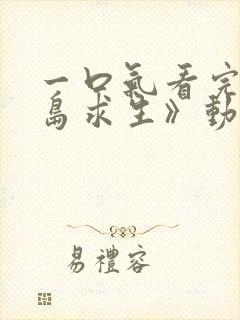 一口氣看完
島求生》動
易禮容